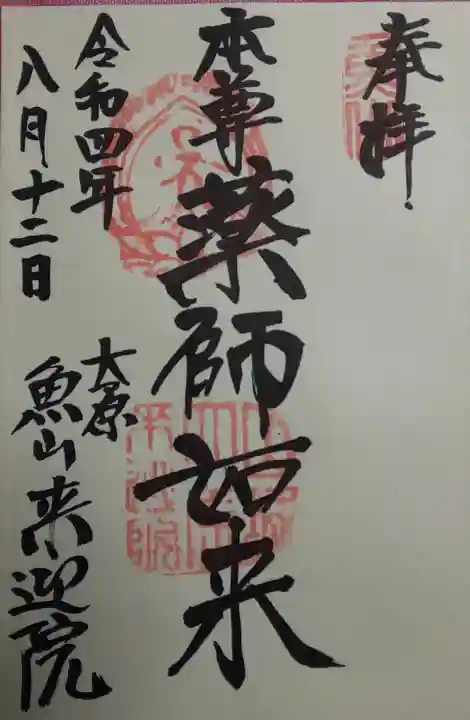 奉拝
本尊薬師如来
令和四年
八月十二日
大原
魚山来迎院